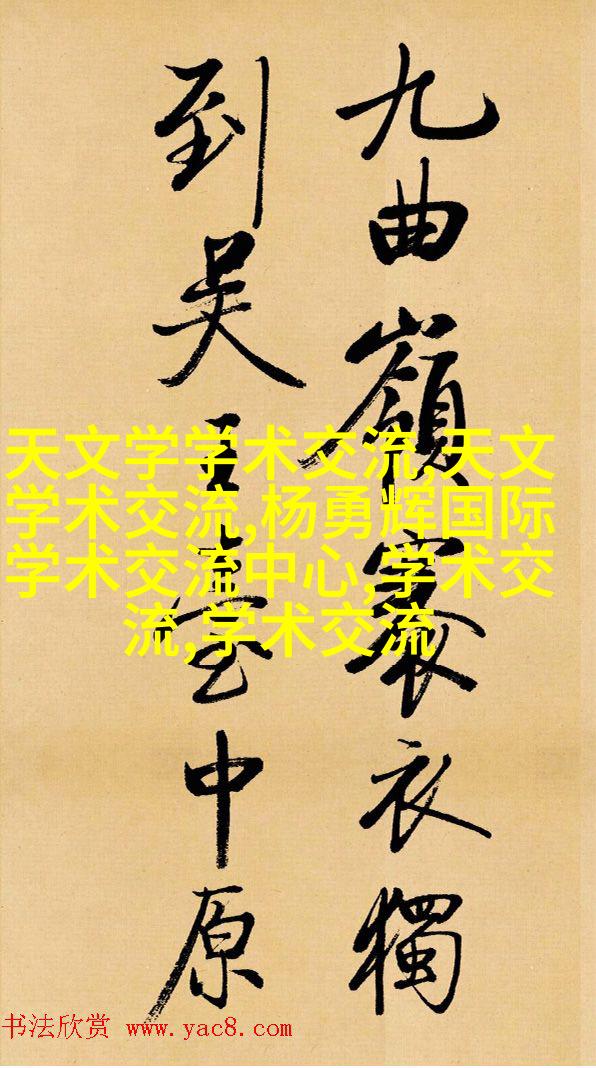 九曲嶺褰衣獨
到吴王臺中原
天文学学术交流,天文
学术交流,杨勇辉国际
学术交流中心,学术交
流,学术交流
书法欣赏 www.yac8.com